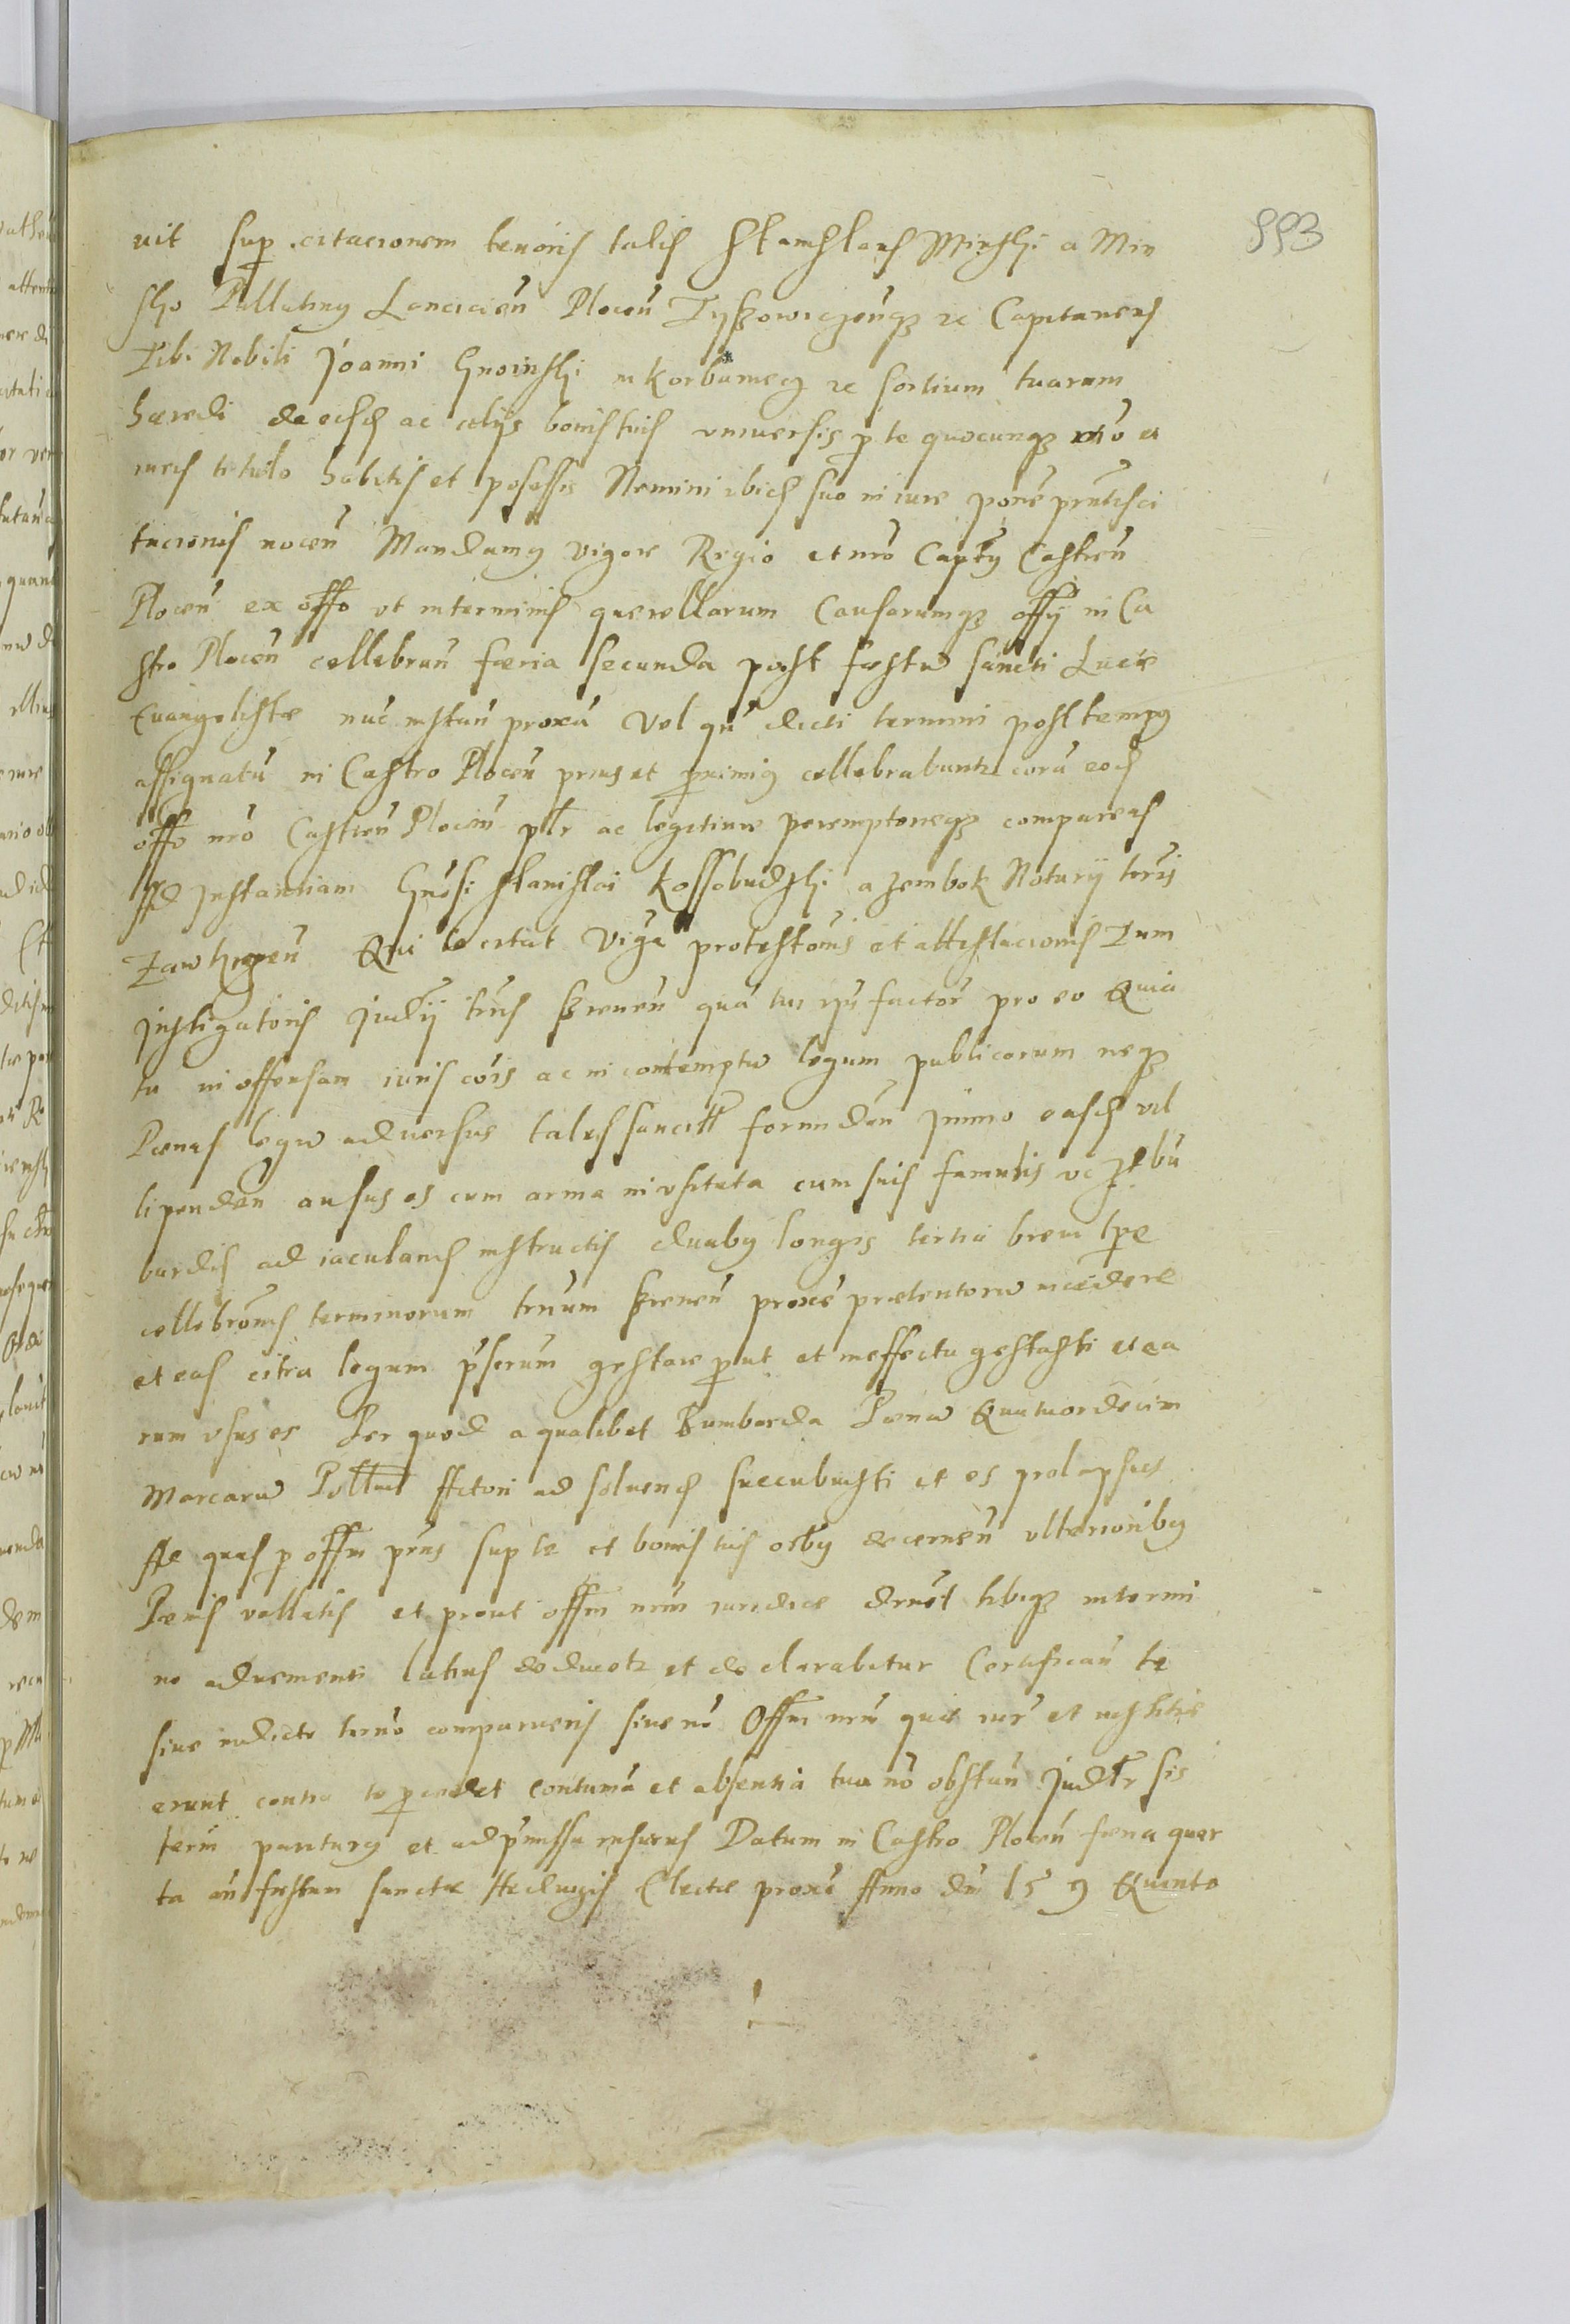 553
uit sup citacionem tenoris talis Stanislaus Minski a Min
sko Pallatinus Lancicien̄ Plocen̄ Tyszowiczen̄qz zc Capitaneus
Tibi Nobili Joanni Gnoinski in Korbaniec zc sortium tuarum
hæredi de eisd ac aliys bonis tuis vniuersis p te quocunqz mō et
iuris titulo habitis et possessis Nemini ibid suo in iure pōne prñtis ci
tacionis nocen̄ Mandamus vigore Regio et nrō Capty Castren̄
Plocen̄ ex offo vt in terminis querellarum Causarumqz offy in Ca
stro Plocen̄ cellebran̄ færia secunda post festū sancti Lucæ
Euangelistæ nūc instan̄ proxā Vel qn̄ dicti termini post tempus
assignatū in Castro Plocen̄ prius et primius cellebrabuntur corā eod
offo nrō Castren̄ Plocen̄ pltr ac legitime peremptorieqz compareas
Ad Instantiam Gn̄osi Stanislai Kossobudzki a Zembok Notary terris
Zawkrzen̄ Qui te citat Viga protestōnis et attestacionis Tum
Instigatoris Judÿ terris Srenen̄ quā tui ipn̄ factor pro eo Quia
tu in offensam iuris cōis ac in contemptū legum publicarum neqz
Pœnas legū aduersus tales sancitt formidan̄ Immo easd vil
lipendan̄ ausus es cum arma inusitata cum suis famulis vcz bū
bardis ad iaculand instructis duabus longis tertia breui tpe
cellebrōnis terminorum trrūm Srenen̄ proxe præteritorū incedere
et eas citra legum pscrum gestare prout et in effectu gestasti et ea
rum vsus es Per quod a qualibet Bumbarda Pœna Quatuordecim
Marcarū Pollict Actori ad soluend succubuisti et es prolapsus
Ad quas p offm pn̄s sup te et bonis tuis oībus decernen̄ vlterioribus
Pœnis vallatis et prout offm nrm iuridice dēnēt tibiqz in termi
no aduenienti latius deducetur et declarabitur Certifican̄ te
siue indicto termō comparueris siue nō Offm nrm quæ iur̄ et iustitiæ
erunt contra te procedet contumā et absentia tua nō obstan̄ Judltr sis
termi pariturus et ad pmissa rnsurus Datum in Castro Plocen̄ færia quar
ta an̄ festum sanctæ Heduigis Electæ proxe Anno dn̄i 159 Quinto